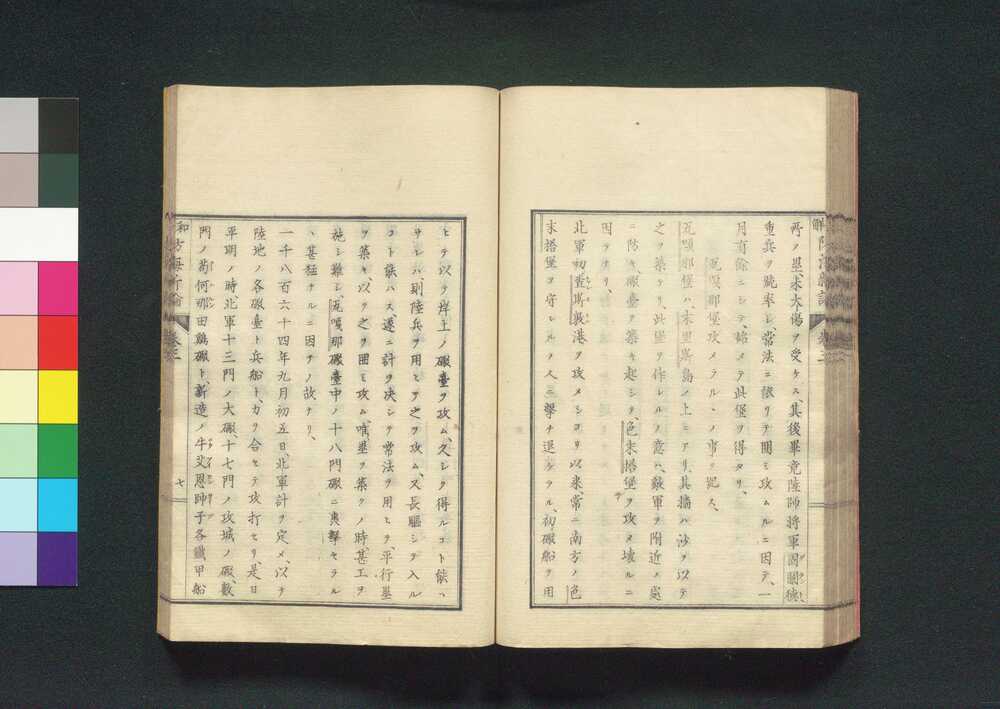 所ノ壘、未大傷ヲ受ケス、其後畢竟陸師将軍固關徳、
重兵ヲ號率シ、常法ニ依リテ圍ミ攻ムルニ因テ、一
月有餘ニシテ、始メテ此堡ヲ得タリ、
瓦嘎那堡攻メラルヽノ事ヲ記ス、
瓦嘎那堡ハ、末里嶌島ノ上ニアリ、其墻ハ沙ヲ以テ
之ヲ築ケリ、此堡ヲ作レルノ意ハ、敵軍ヲ附近ノ處
ニ防キ、礮臺ヲ築キ起シテ、色末搭堡ヲ攻メ壊ルニ
因ツナリ、
北軍初査嶌敦港ヲ攻メシヨリ以来、常ニ南方ノ色
末搭堡ヲ守レルノ人ニ擊チ退ケラル、初礮船ヲ用
ヒテ以テ岸上ノ礮臺ヲ攻ム、久シク得ルコト能ハ
サレハ則陸兵ヲ用ヒテ之ヲ攻ム、又長驅シテ入ル
コト能ハス、遂ニ計ヲ决シテ常法ヲ用ヒテ、平行壘
ヲ築キ、以テ之ヲ圍ミ攻ム、唯壘ヲ築クノ時、甚工ヲ
施シ難シ、瓦嘎那礮臺中ノ十八門礮ニ轟擊セラル
ヽ甚猛ナルニ因テノ故ナリ、
一千八百六十四年九月初五日、北軍計ヲ定メ、以テ
陸地ノ各礮臺ト兵船ト、力ヲ合セテ攻打セリ、是日
平明ノ時北軍十三門ノ大礮、十七門ノ攻城ノ礮、數
門ノ苟何那田鷄礮ト、新造ノ牛父恩師予各鐵甲船
七